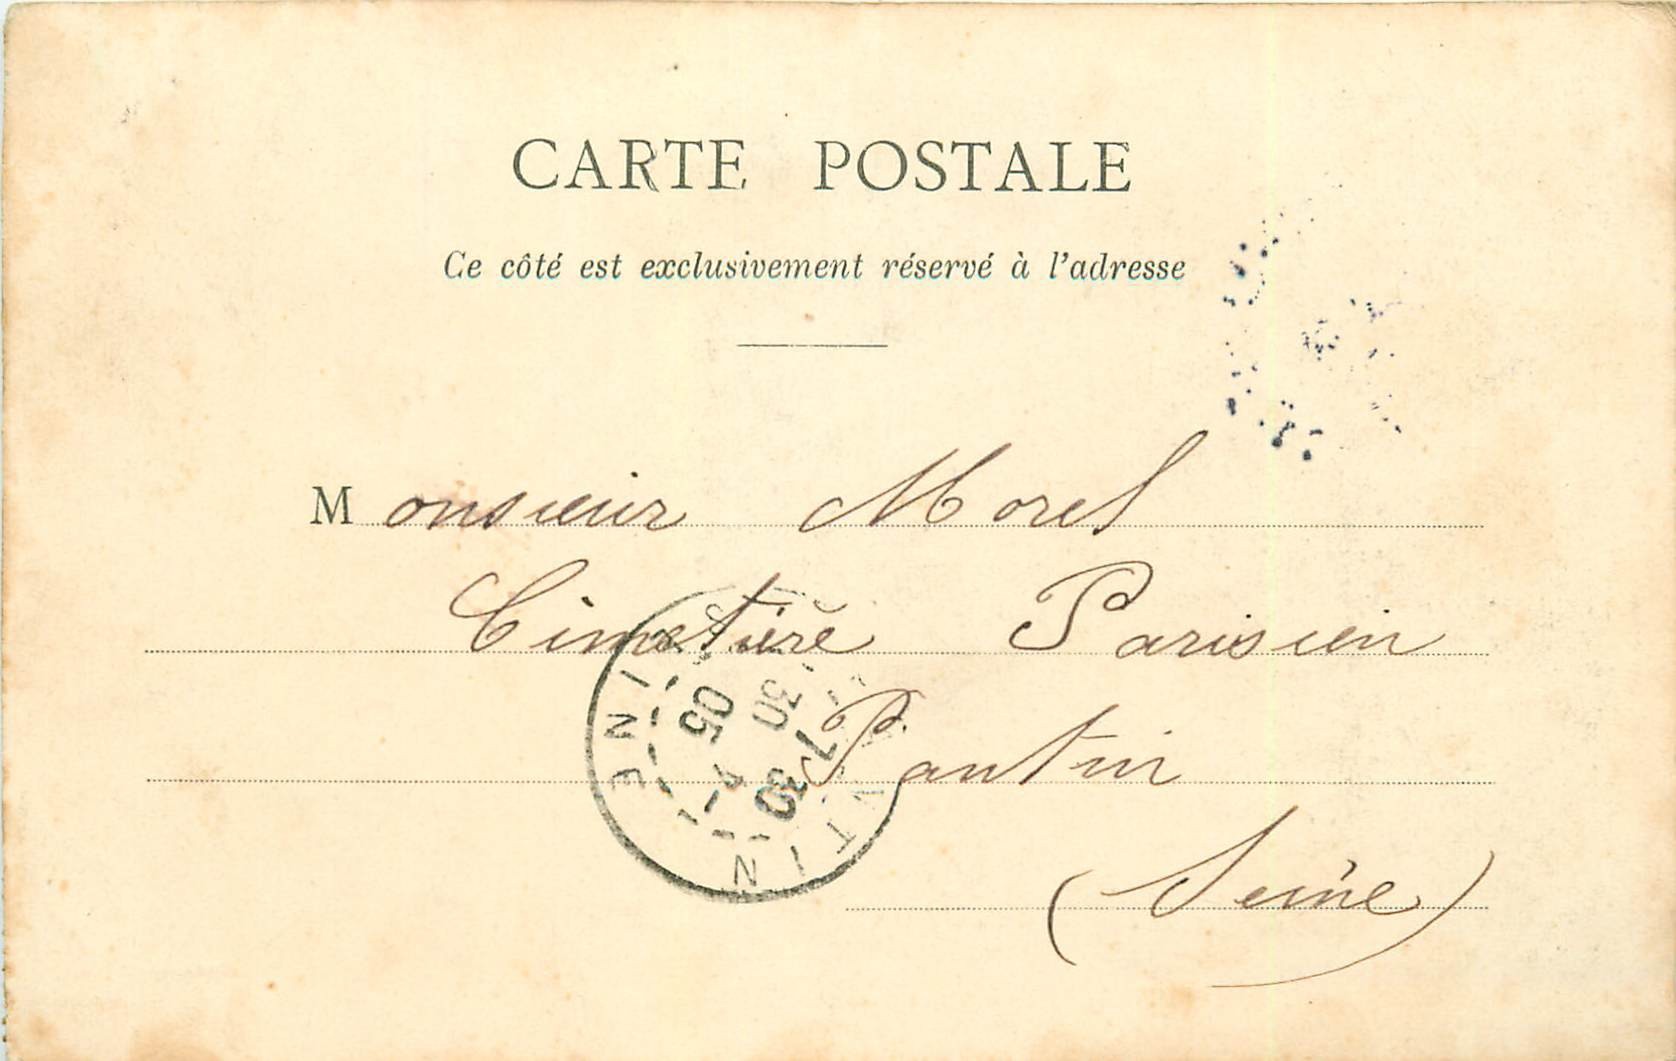 CARTE POSTALE
Ce côté est exclusivement réservé à l'adresse
Monsieur Morel
Cimetière Parisien
Pantin
(Seine)
NTIN
7 30
30
05
INE